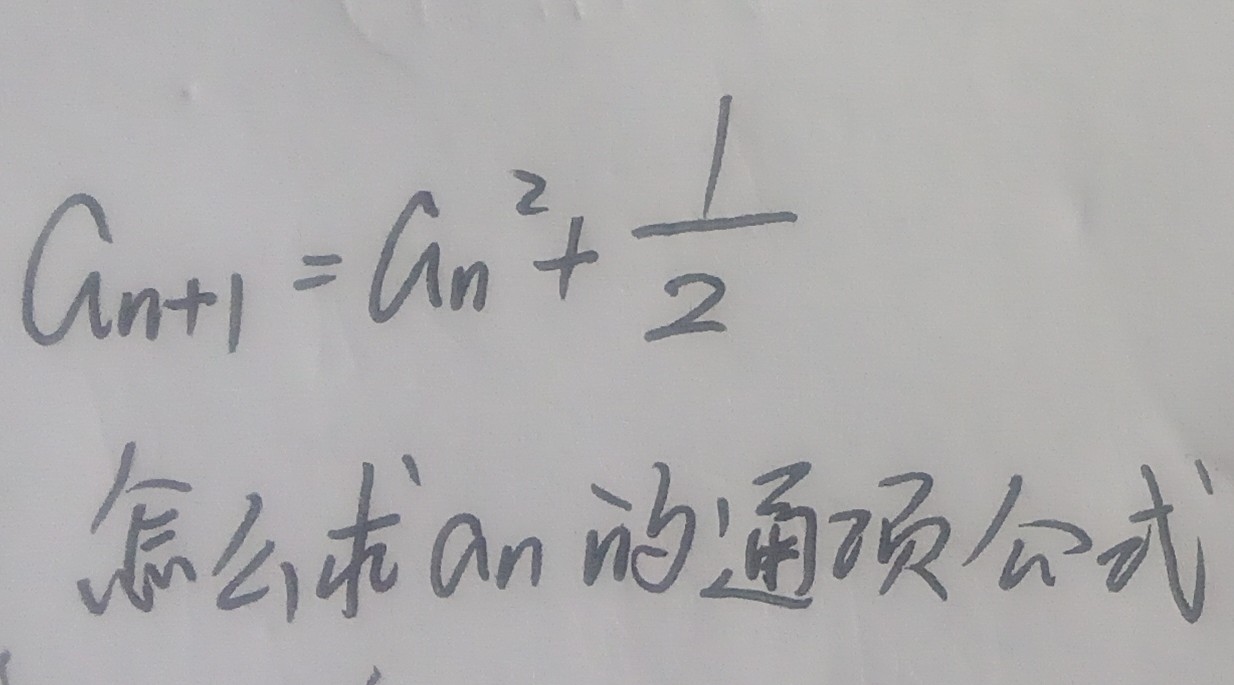 aₙ₊₁ = aₙ² + 1/2
怎么求an的通项公式